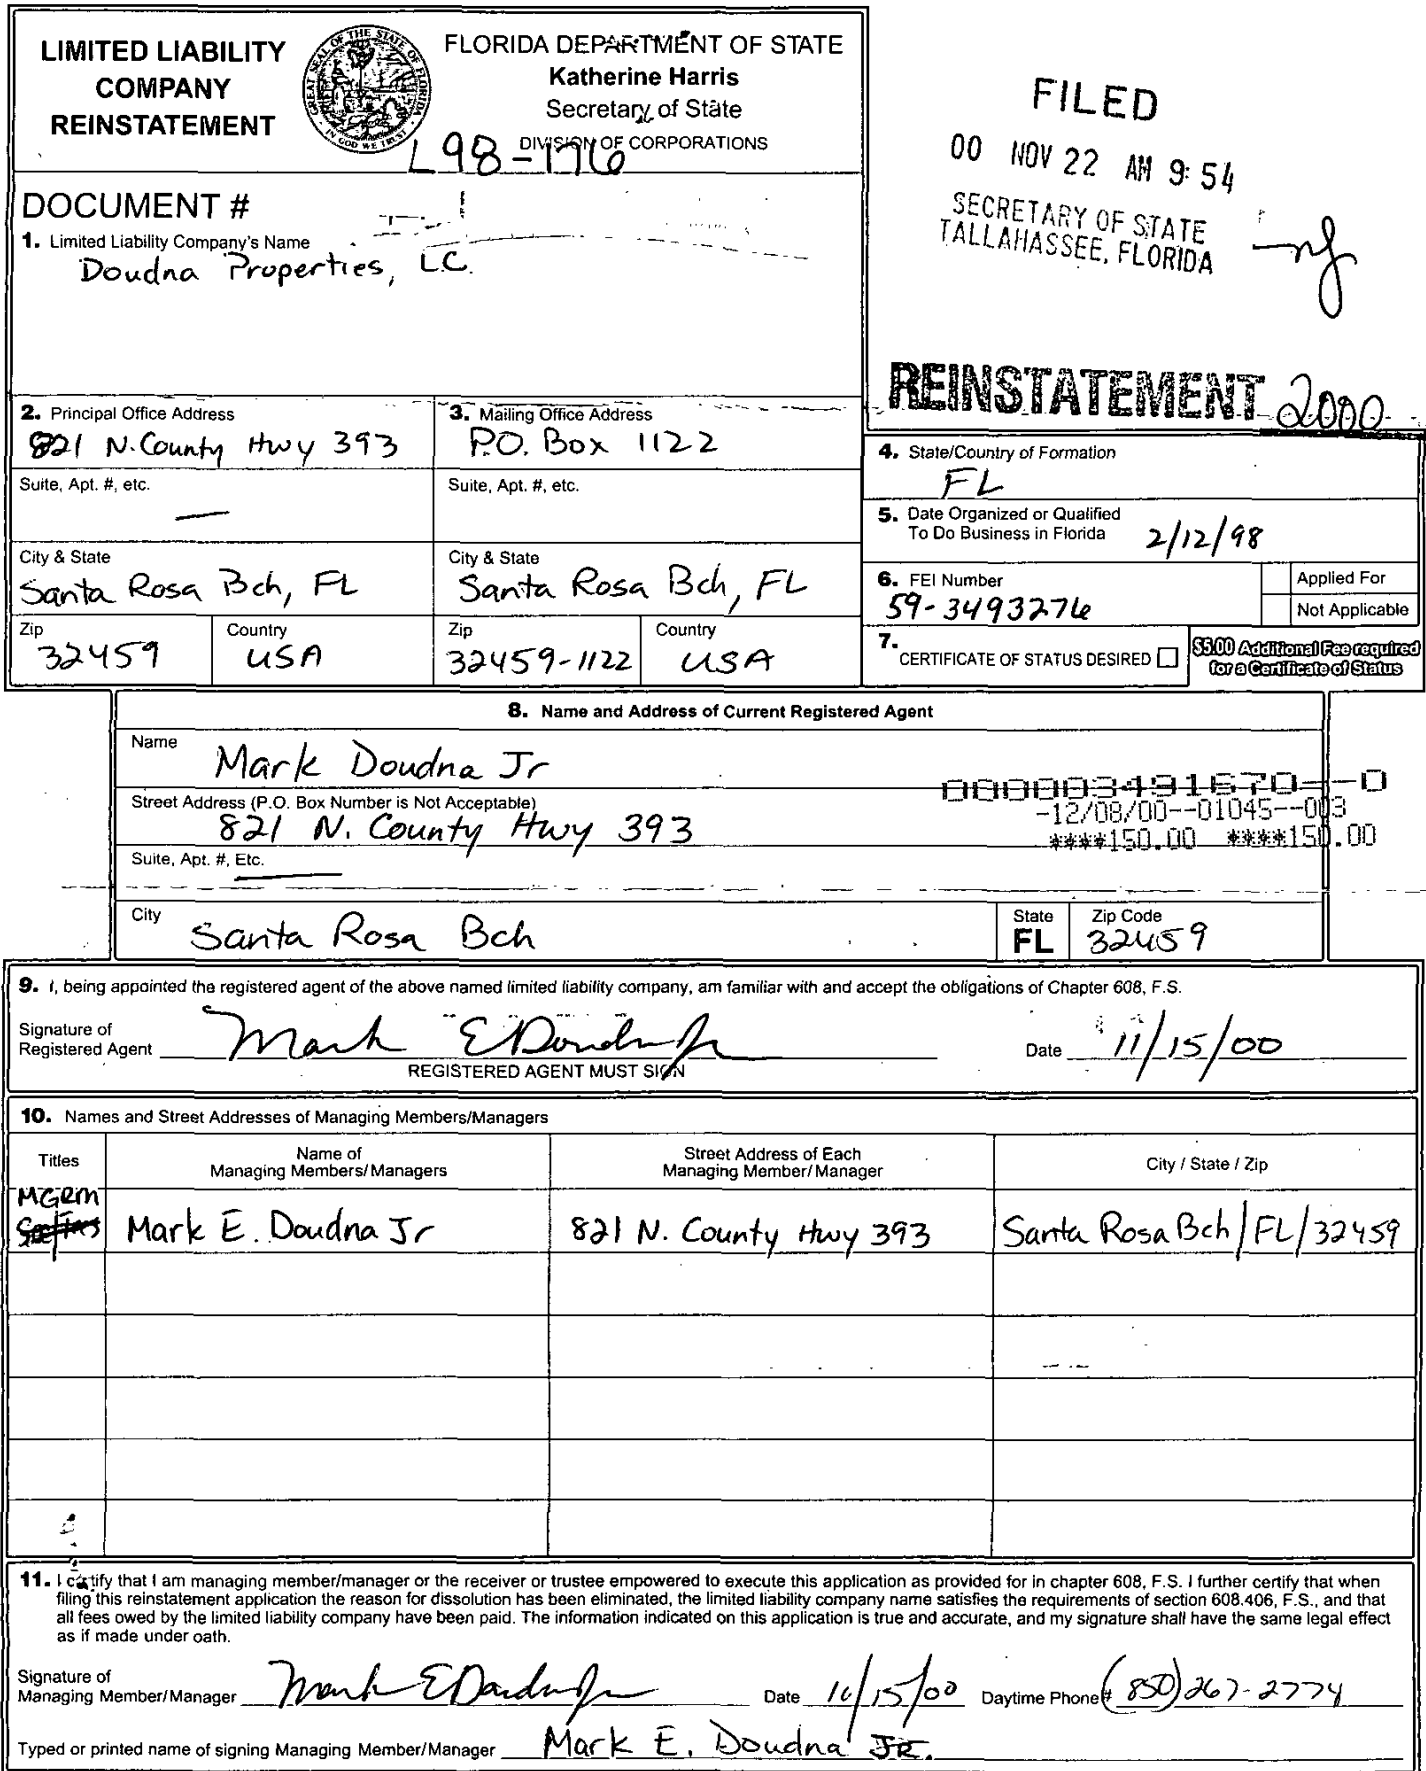 LIMITED LIABILITY
COMPANY
REINSTATEMENT
GREAT SEAL OF THE STATE OF FLORIDA
IN GOD WE TRUST
FLORIDA DEPARTMENT OF STATE
Katherine Harris
Secretary of State
DIVISION OF CORPORATIONS
L98-176
FILED
00 NOV 22 AM 9:54
SECRETARY OF STATE
TALLAHASSEE, FLORIDA
DOCUMENT #
1. Limited Liability Company's Name
Doudna Properties, L.C.
REINSTATEMENT 2000
2. Principal Office Address
821 N. County Hwy 393
3. Mailing Office Address
P.O. Box 1122
Suite, Apt. #, etc.
—
Suite, Apt. #, etc.
City & State
Santa Rosa Bch, FL
City & State
Santa Rosa Bch, FL
Zip
32459
Country
USA
Zip
32459-1122
Country
USA
4. State/Country of Formation
FL
5. Date Organized or Qualified
To Do Business in Florida 2/12/98
6. FEI Number
59-3493276
Applied For
Not Applicable
7. CERTIFICATE OF STATUS DESIRED
$5.00 Additional Fee required
for a Certificate of Status
8. Name and Address of Current Registered Agent
Name
Mark Doudna Jr
Street Address (P.O. Box Number is Not Acceptable)
821 N. County Hwy 393
000003491670--0
-12/08/00--01045--003
****150.00 ****150.00
Suite, Apt. #, Etc.
City
Santa Rosa Bch
State
FL
Zip Code
32459
9. I, being appointed the registered agent of the above named limited liability company, am familiar with and accept the obligations of Chapter 608, F.S.
Signature of
Registered Agent Mark E Doudna Jr
REGISTERED AGENT MUST SIGN
Date 11/15/00
10. Names and Street Addresses of Managing Members/Managers
Titles
Name of
Managing Members/Managers
Street Address of Each
Managing Member/Manager
City / State / Zip
MGRM
Mark E. Doudna Jr 821 N. County Hwy 393 Santa Rosa Bch/FL/32459
11. I certify that I am managing member/manager or the receiver or trustee empowered to execute this application as provided for in chapter 608, F.S. I further certify that when
filing this reinstatement application the reason for dissolution has been eliminated, the limited liability company name satisfies the requirements of section 608.406, F.S., and that
all fees owed by the limited liability company have been paid. The information indicated on this application is true and accurate, and my signature shall have the same legal effect
as if made under oath.
Signature of
Managing Member/Manager Mark E Doudna Jr Date 11/15/00 Daytime Phone # (850) 267-2774
Typed or printed name of signing Managing Member/Manager Mark E. Doudna JR.